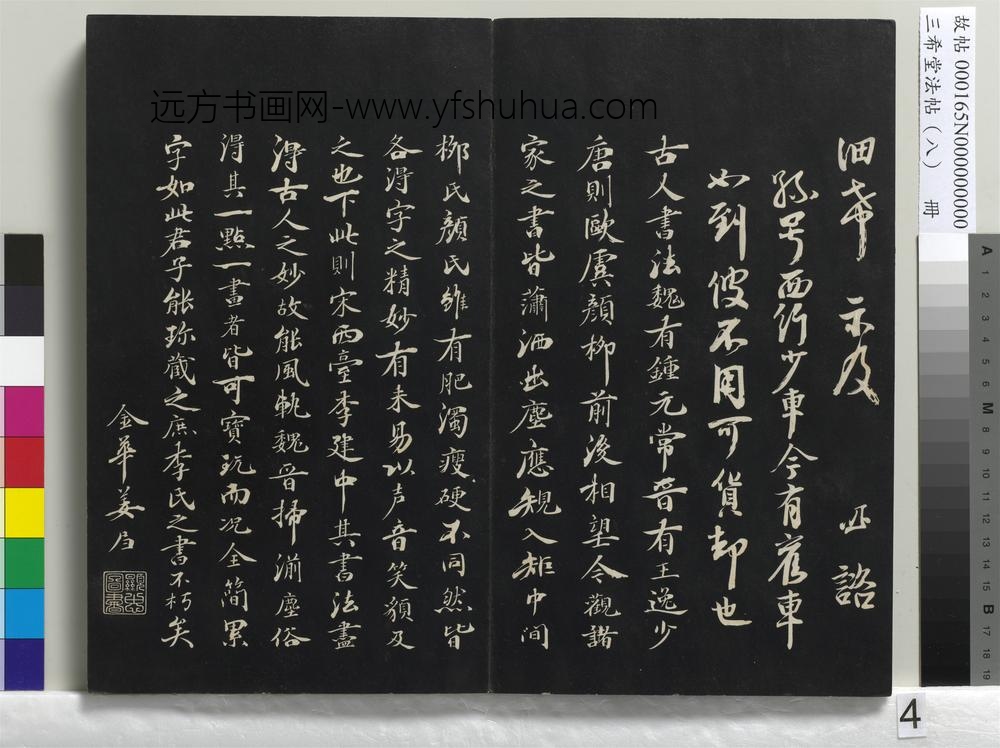 故帖 000165N000000000
三希堂法帖（八） 冊
远方书画网-www.yfshuhua.com
示及 諮
孫号西行少車今有舊車
如到彼不用可貨却也
古人書法魏有鍾元常晉有王逸少
唐則歐虞顏柳前後相望今觀諸
家之書皆蕭洒出塵應規入矩中間
柳氏顏氏雖有肥濁瘦硬不同然皆
各淂字之精妙有未易以声音笑貌及
之也下此則宋西臺李建中其書法盡
淂古人之妙故能風軌魏晉掃湔塵俗
淂其一點一畫者皆可寶玩而况全簡累
字如此君子能珎藏之庶李氏之書不朽矣
金華姜
A 1 2 3 4 5 6 M 8 9 10 11 12 13 14 15 B 17 18 19
4